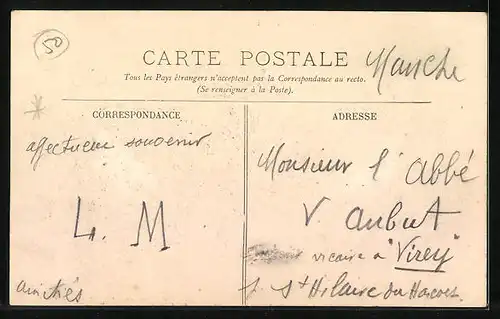 50
CARTE POSTALE
Manche
Tous les Pays étrangers n'acceptent pas la Correspondance au recto.
(Se renseigner à la Poste).
CORRESPONDANCE
affectueux souvenir
L. M
amitiés
ADRESSE
Monsieur l'Abbé
V Aubut
vicaire à "Virey"
St Hilaire du Harcoet